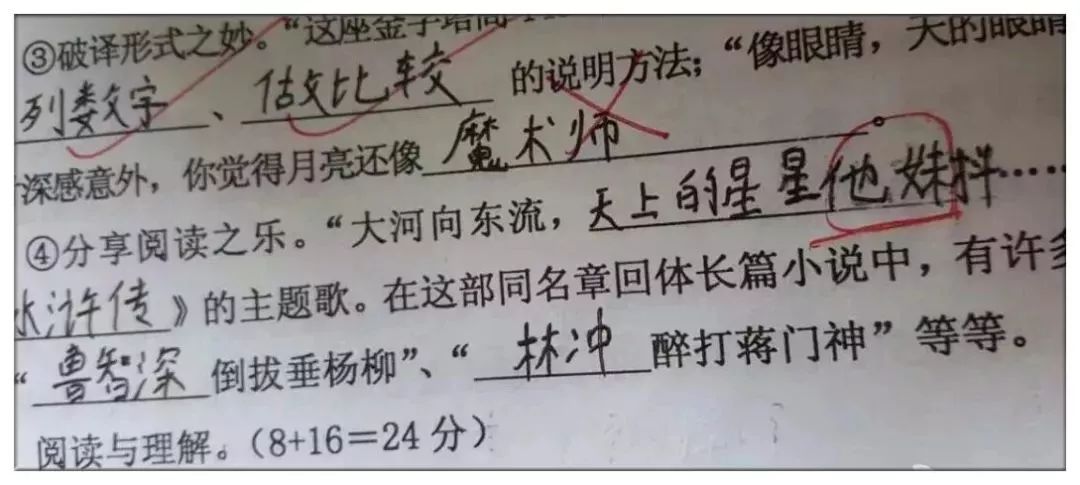 ③破译形式之妙。“这座金字塔高
列数字、作比较的说明方法；“像眼睛，天的眼睛
深感意外，你觉得月亮还像魔术师。
④分享阅读之乐。“大河向东流，天上的星星他妹抖……
水浒传》的主题歌。在这部同名章回体长篇小说中，有许多
“鲁智深倒拔垂杨柳”、“林冲醉打蒋门神”等等。
阅读与理解。（8+16＝24 分）